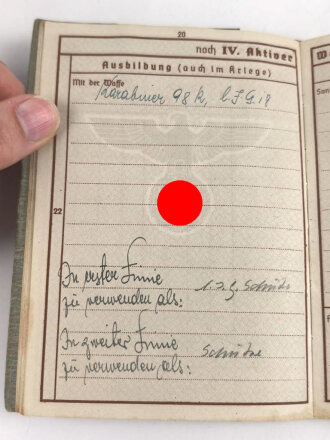 20
noch IV. Aktiver
Ausbildung (auch im Kriege)
Mit der Waffe
Karabiner 98 k, l. I.G. 18
22
In erster Linie
zu verwenden als: l. I. G. Schütze
In zweiter Linie
zu verwenden als: Schütze